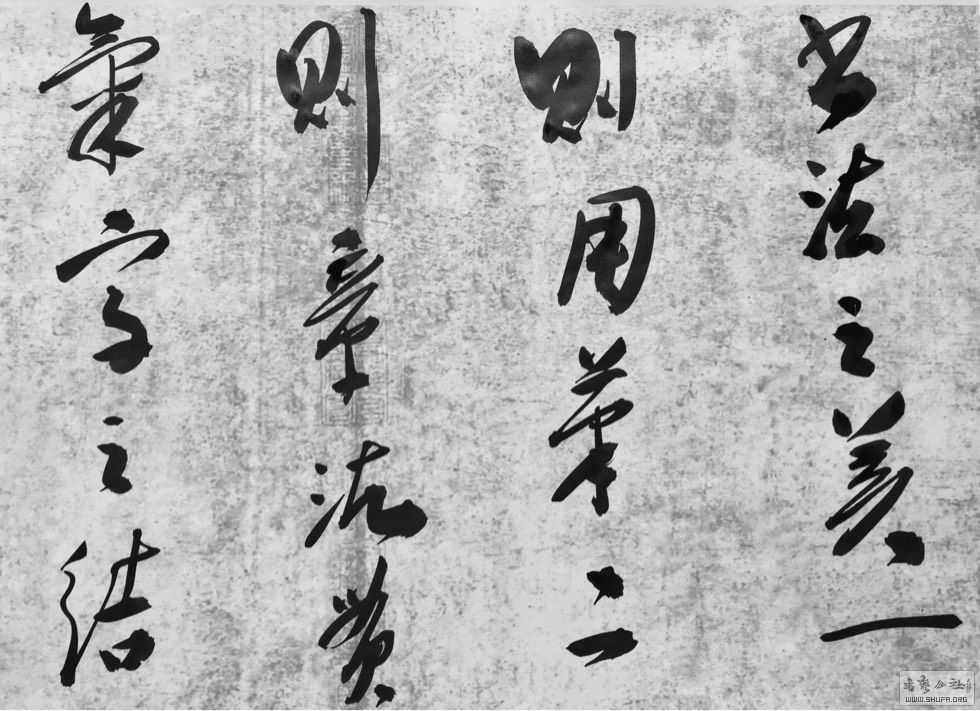 书法之美一
则用筆二
则章法贵
氣字之结
書藝公社
WWW.SHUFA.ORG